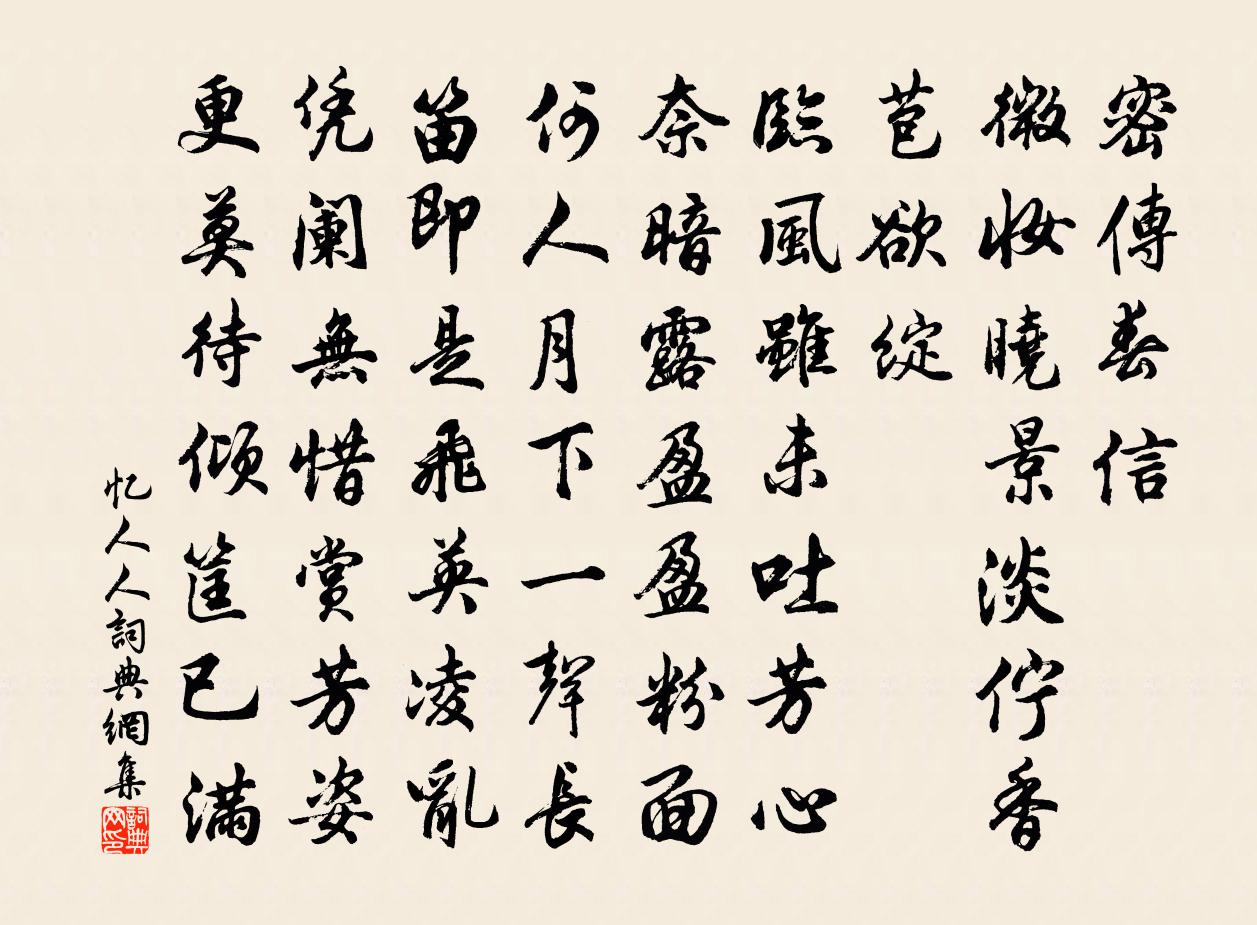 密傳春信
微妝曉景淡佇香
苞欲綻
臨風雖未吐芳心
奈暗露盈盈粉面
何人月下一聲長
笛即是飛英凌亂
凭阑無惜賞芳姿
更莫待傾筐已滿
忆人人詞典網集
詞典网印